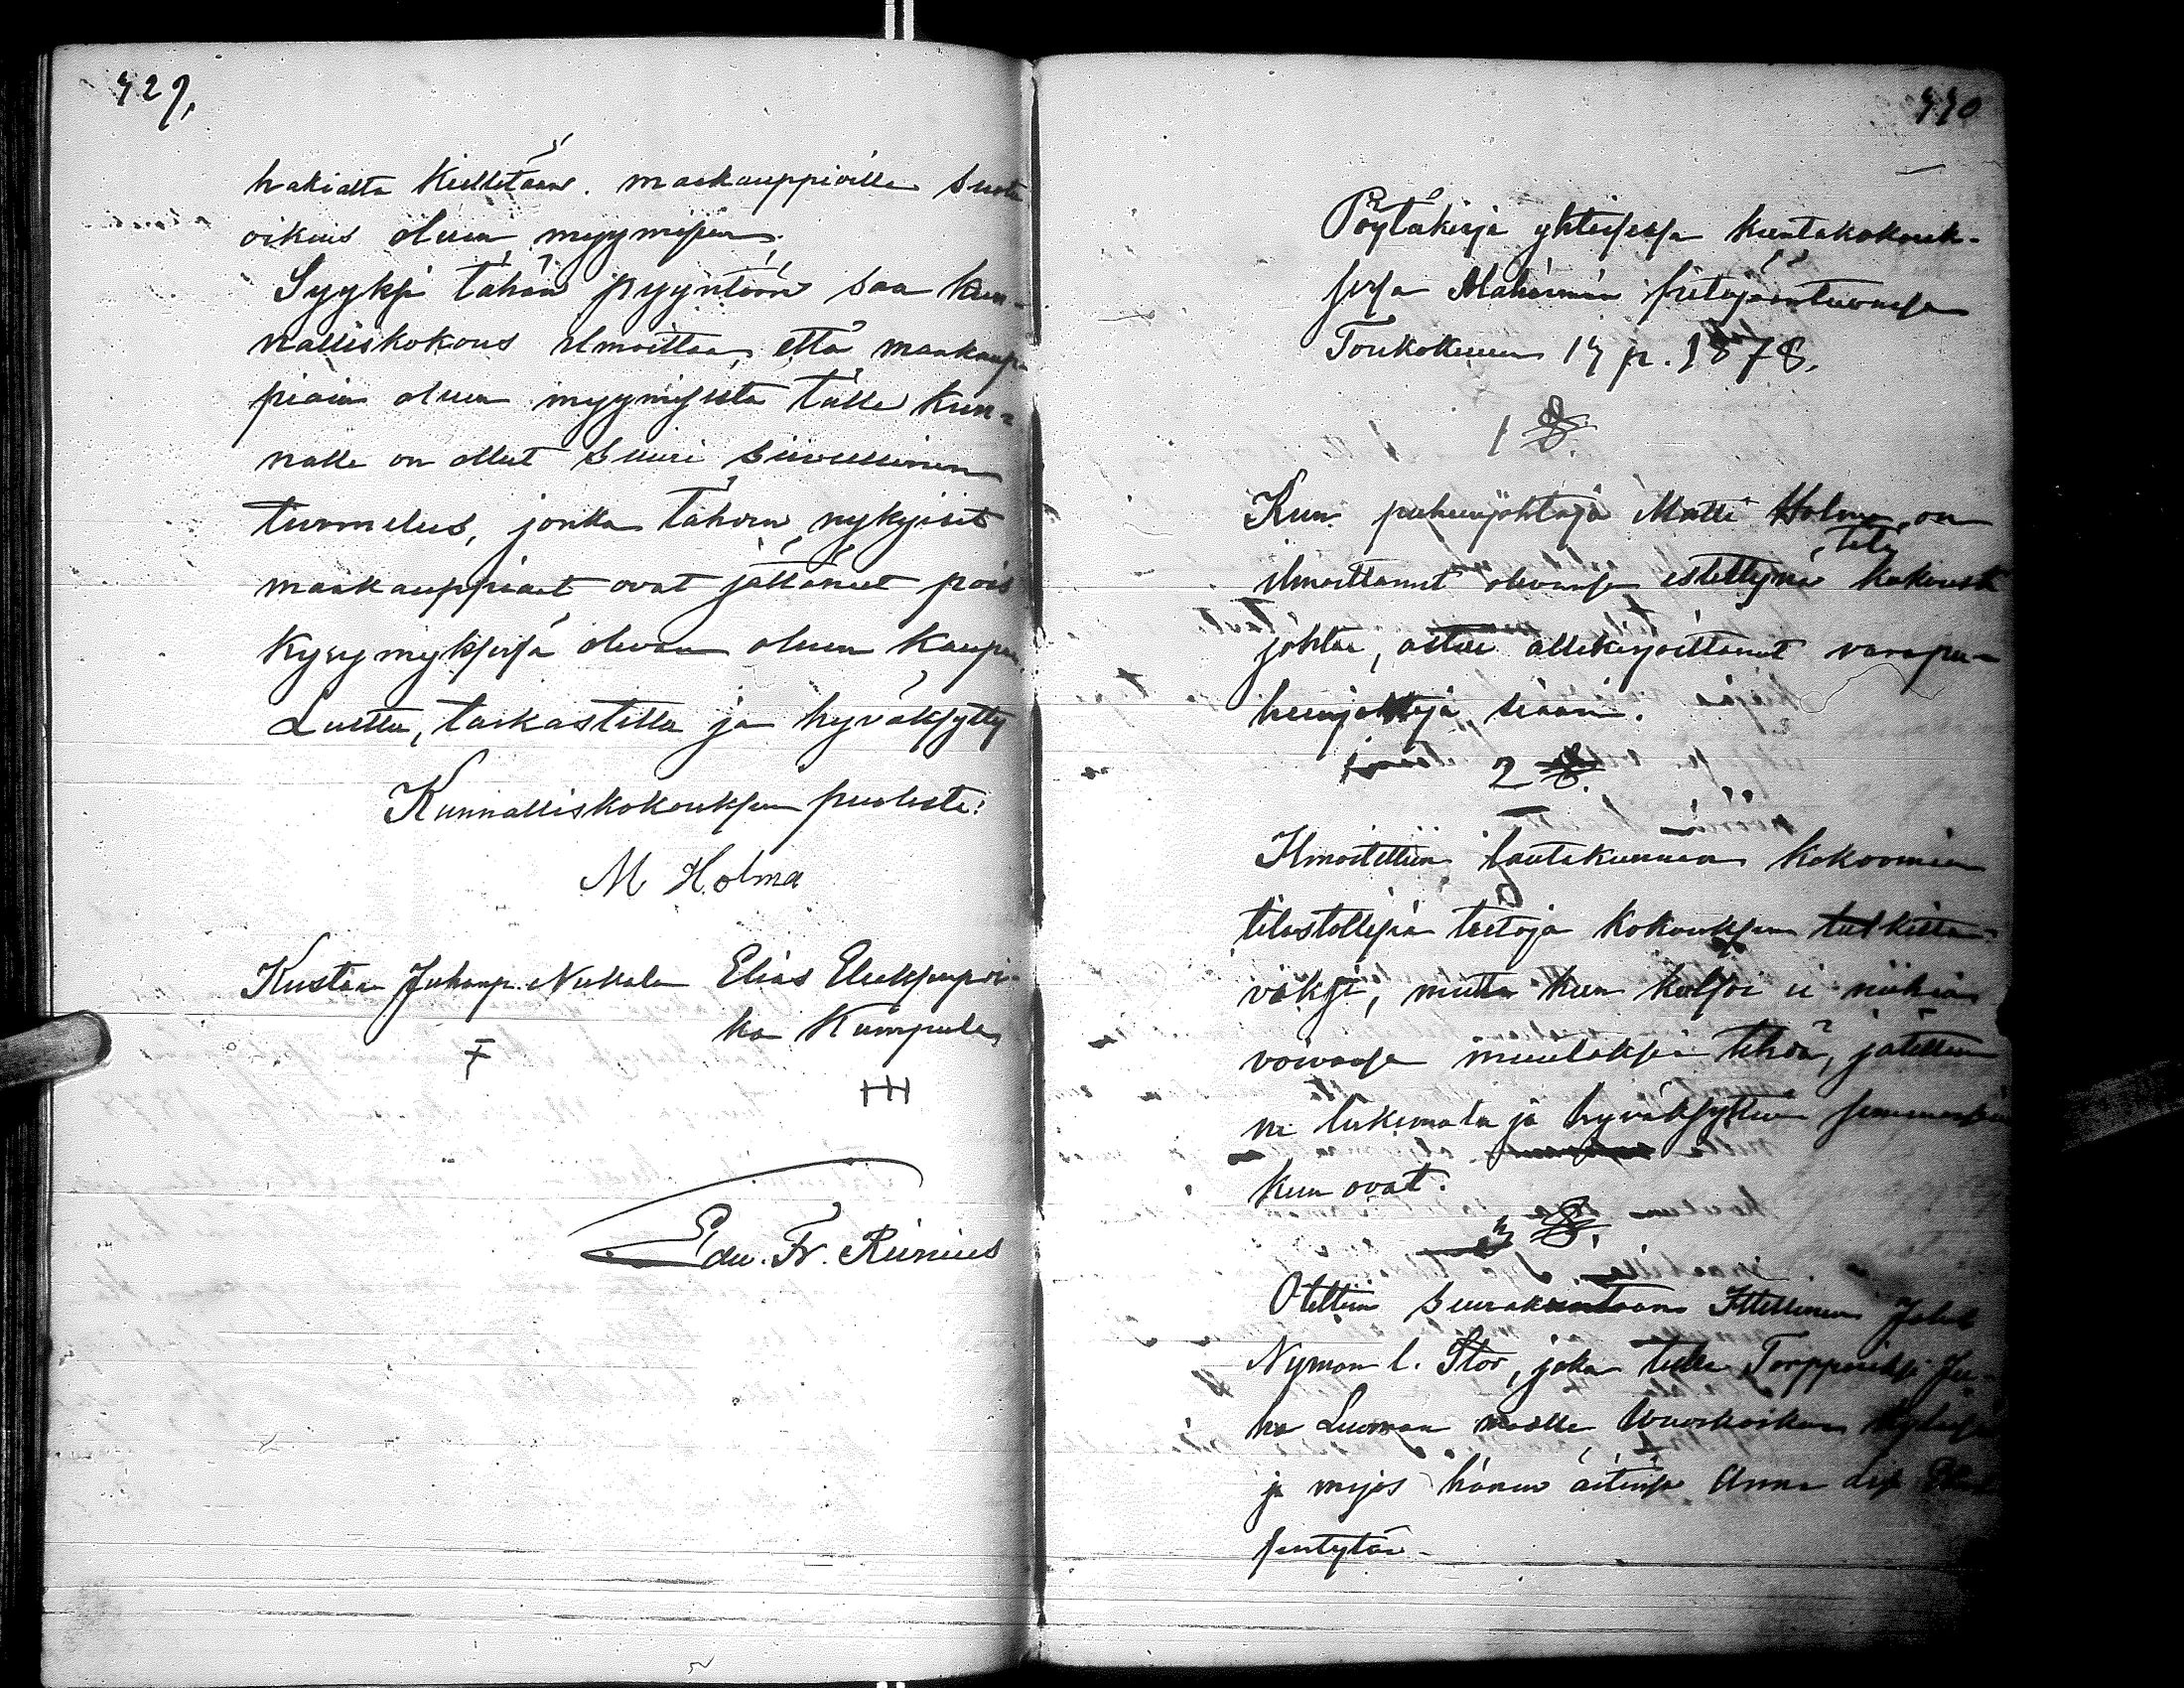 429,
hakialta kielletään. maakauppioilla suotu
oikeus oluen myymiseen.
Syyksi tähän pyyntöön saa kun-
nalliskokous ilmoittaa, että maakaup-
piain oluen myymisestä tälle kun-
nalle on ollut suuri siivellinen
turmelus, jonka tähden nykyiset
maakauppiaat ovat jättäneet pois
kysymyksessä olevan oluen kaupan.
Luettu, tarkastettu ja hyväksytty
Kunnalliskokouksen puolesta:
M Holma
Kustaa Juhanp. Nukala Elias Eliaksenpoi-
ka Kumpula
Edv. Fr. Rinius
430
Pöytäkirja yhteisessä kuntakokouk-
sessa Maksmaa pitäjäntuvassa
Toukokuun 14 p. 1878.
1 §.
Kun puheenjohtaja Matti Holma, on
ilmoittanut olevansa estettynä kokousta
johtaa, astui allekirjoittanut varapu-
heenjohtaja siaan.
2 §.
Ilmoitettiin lautakunnan kokoomien
tilastollisia tietoja kokouksen tutkitta-
vaksi, mutta kun katsoi ei niihin
voivansa muutoksia tehdä, jätettiin
ne lukemata ja hyväksyttiin semmoisina
kuin ovat.
3 §.
Otettiin seurakuntaan Itsellinen
Nyman l. Stor, joka tulee Torppariksi Ju-
ha Luoman maalle kylässä
ja myös hänen äitinsä Anna Lis
sentytär.